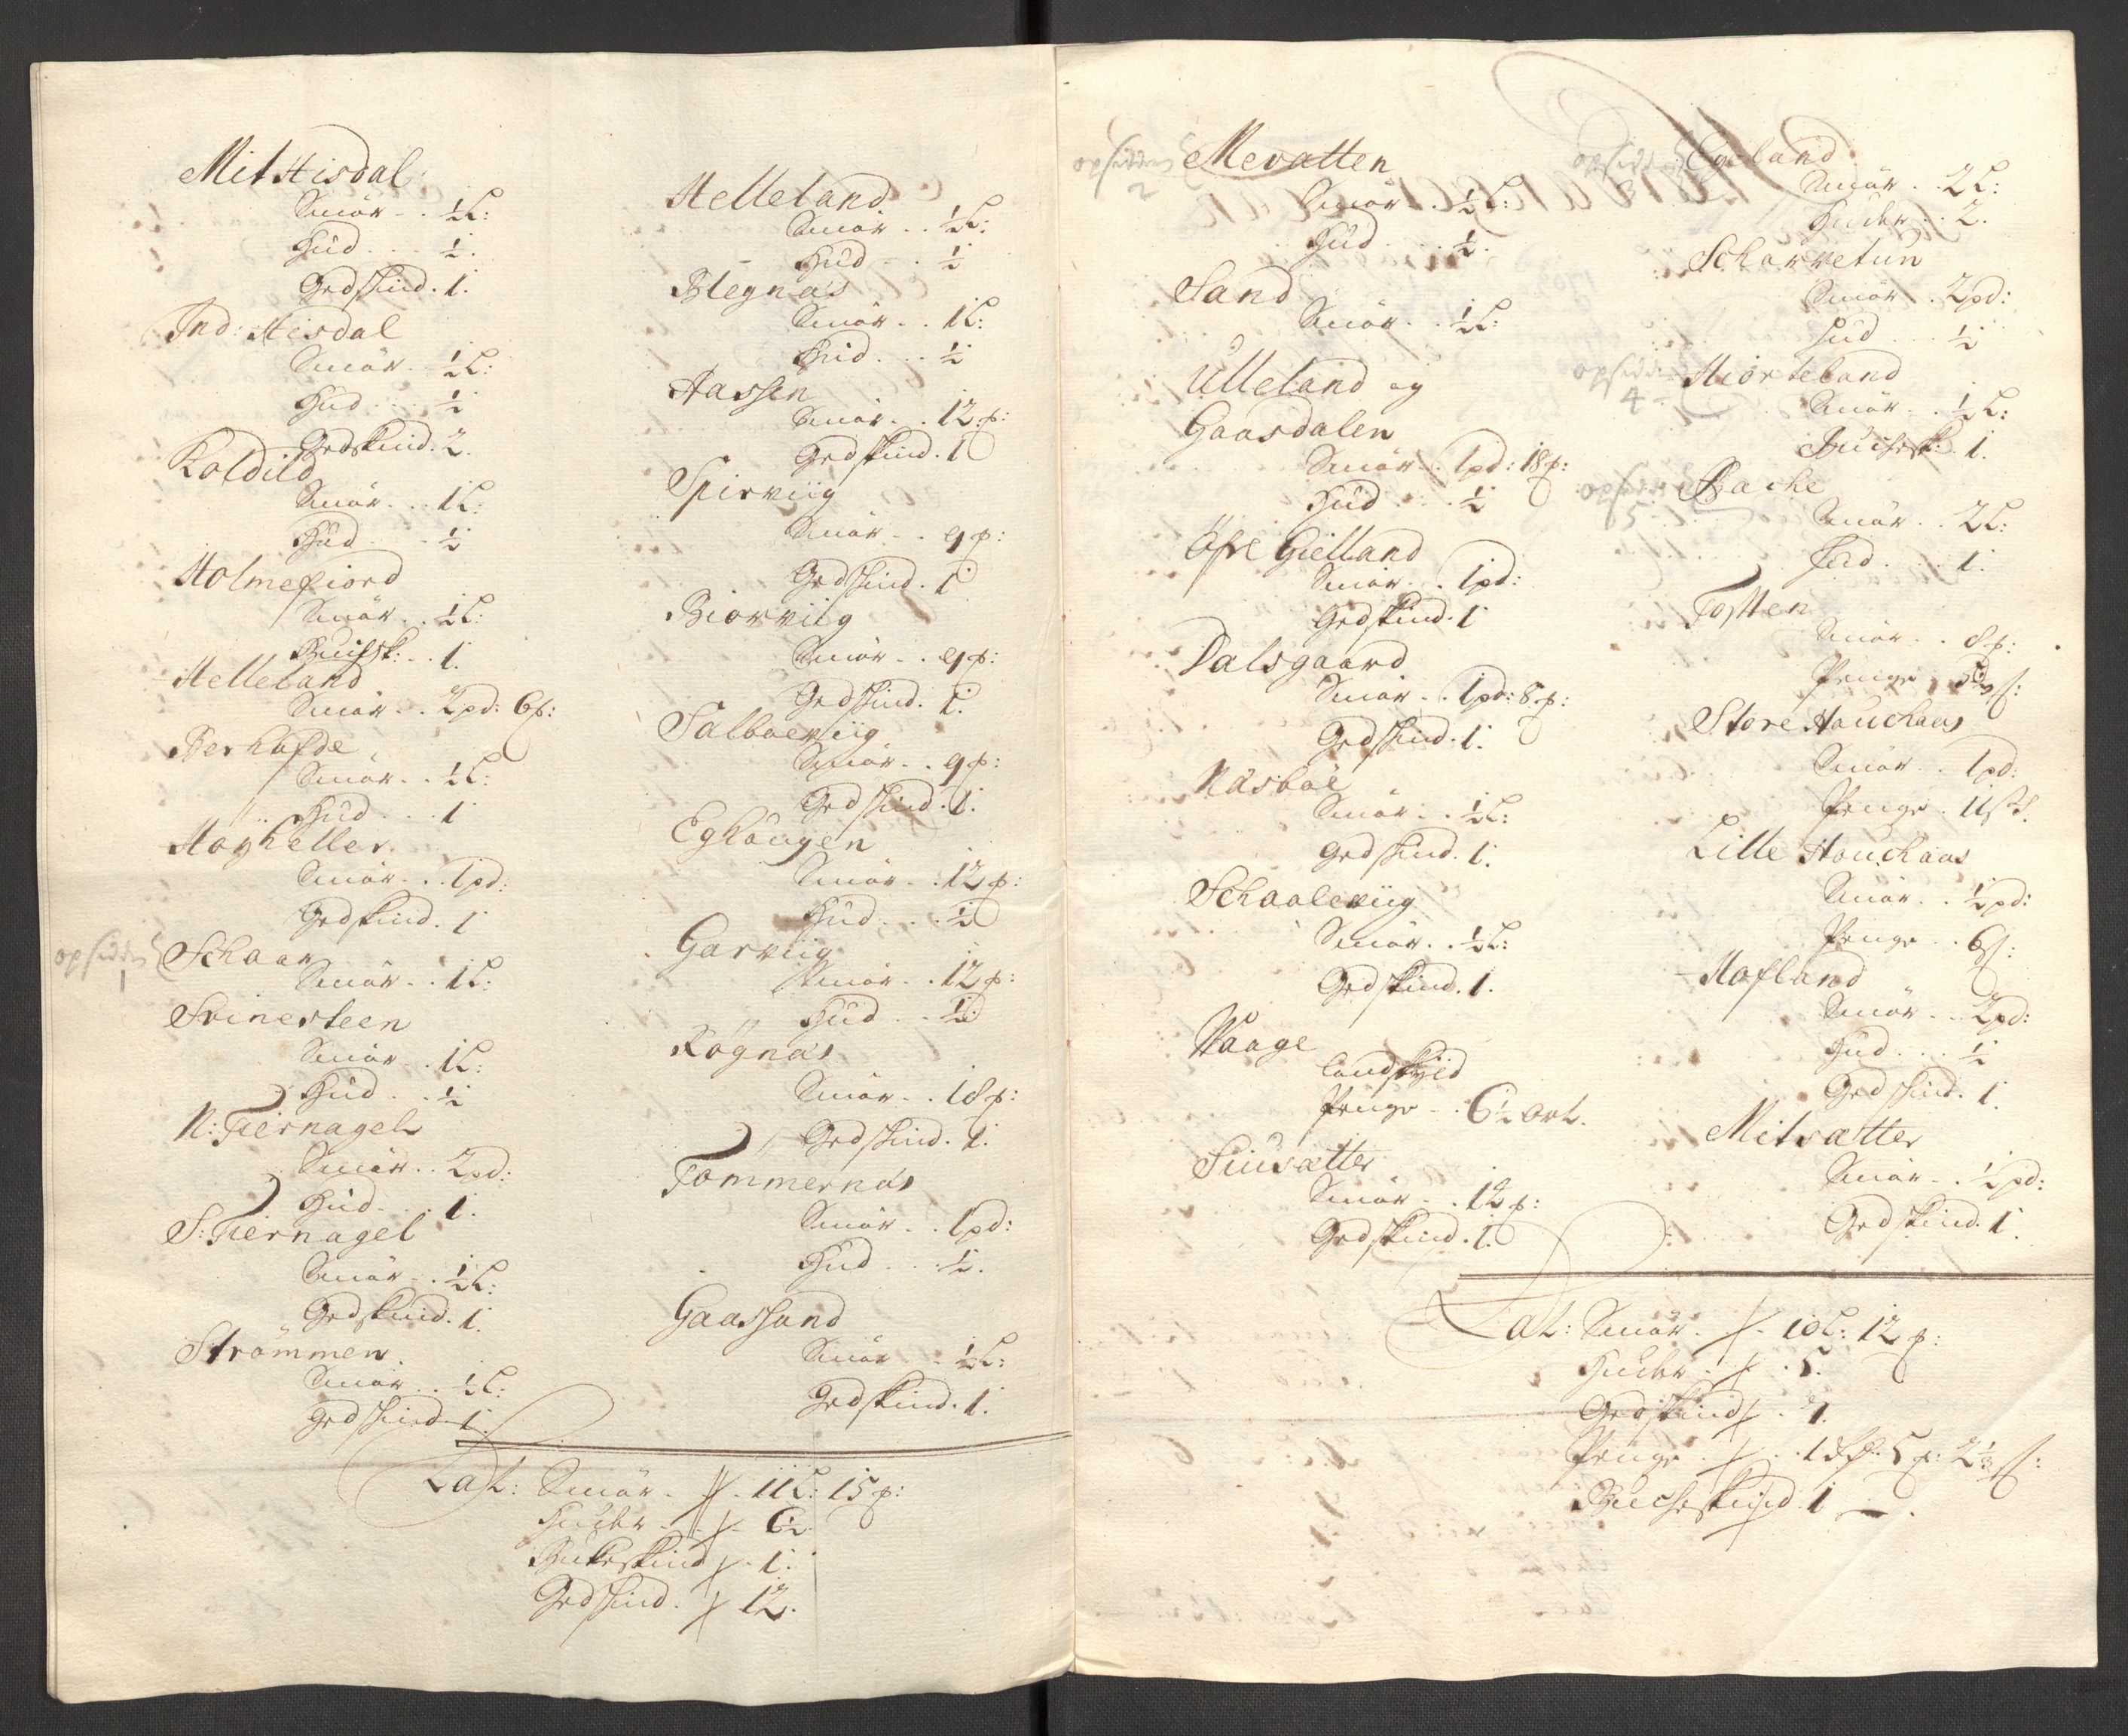 Mit Hisdal
Smör . . ½ L:
Hud . . . ½.
Gedskind . 1.
Ind: Hisdal
Smör . . ½ L:
Hud . . . ½
Gedskind . 2.
Koldild
Smör . . . 1 L:
Hud . . . ½
Holmefiord
Smör . . ½ L:
Buchsk: . . 1.
Helleland
Smör . . 2 pd: 6 p:
Berhofde
Smör . . ½ L:
Hud . . . 1
Hoyheller
Smör . . . 1 pd:
Gedskind . 1
opsidder 1
Schaar
Smör . . 1 L:
Svinesteen
Smör . . 1 L:
Hud . . ½
N: Tiernagel
Smör . . 2 pd:
Hud . . . 1.
S: Tiernagel
Smör . . ½ L:
Gedskind . 1.
Strömmen
Smör . . ½ L:
Gedskind 1.
Helleland
Smör . . ½ L:
Hud . . ½
Blegnäs
Smör . . 1 L:
Hud . . . ½
Aassen
Smör . . 12 p:
Gedskind . 1
Spirviig
Smör . . 9 p:
Gedskind . 1
Biorviig
Smör . . 9 p:
Gedskind . 1.
Salboeviig
Smör . . 9 p:
Gedskind . 1.
Eghougen
Smör . . 12 p:
Hud . . . ½
Garviig
Smör . . 12 p:
Hud . . ½
Rögnäs
Smör . . 18 p:
Gedskind . 1.
Tömmernäs
Smör . . 1 pd:
Hud . . . ½.
Gaassand
Smör . . ½ L:
Gedskind . 1.
Lat: Smör . . 11 L: 15 p:
Huder . . 6½
Bukeskind . 1.
Gedskind . 12.
opsidder 2
Mevatten
Smör . . ½ L:
Hud . . . ½.
Sand
Smör . . ½ L:
Ulleland og
Gaasdalen
Smör . . 1 pd: 18 p:
Hud . . . ½
Öfre Gielland
Smör . . 1 pd:
Gedskind . 1
Dalsgaard
Smör . . 1 pd: 8 p:
Gedskind . 1.
Näsböe
Smör . . ½ L:
Gedskind . 1.
Schaaleviig
Smör . . ½ L:
Gedskind . 1.
Waage
Landskyld
Penge . . 6½ ort.
Siusætter
Smör . . 12 p:
Gedskind . 1.
opsidder 3
Egeland
Smör . . 2 L:
Huder . . 2.
Scharvetun
Smör . . 2 pd:
Hud . . . ½
opsidder 4
Hiorteland
Smör . . ½ L:
Buchesk: . 1.
opsidder 5
Bache
Smör . . 2 L:
Hud . . . 1.
Tosten
Smör . . 8 p:
Penge
Store Houchaas
Smör . . 1 pd:
Penge . 11 s:
Lille Houchaas
Smör . . ½ pd:
Penge . . 6 s:
Hofland
Smör . . 2 pd:
Hud . . . ½
Gedskind . 1.
Mitsætter
Smör . . ½ pd:
Gedskind . 1.
Lat: Smör . . 10 L: 12 p:
Huder . . 5.
Gedskind . 9.
Penge
Bucheskind . 1